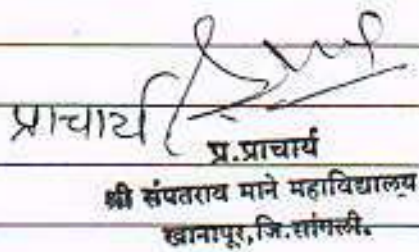 प्राचार्य
प्र.प्राचार्य
श्री संपतराव माने महाविद्यालय
खानापूर,जि.सांगली.